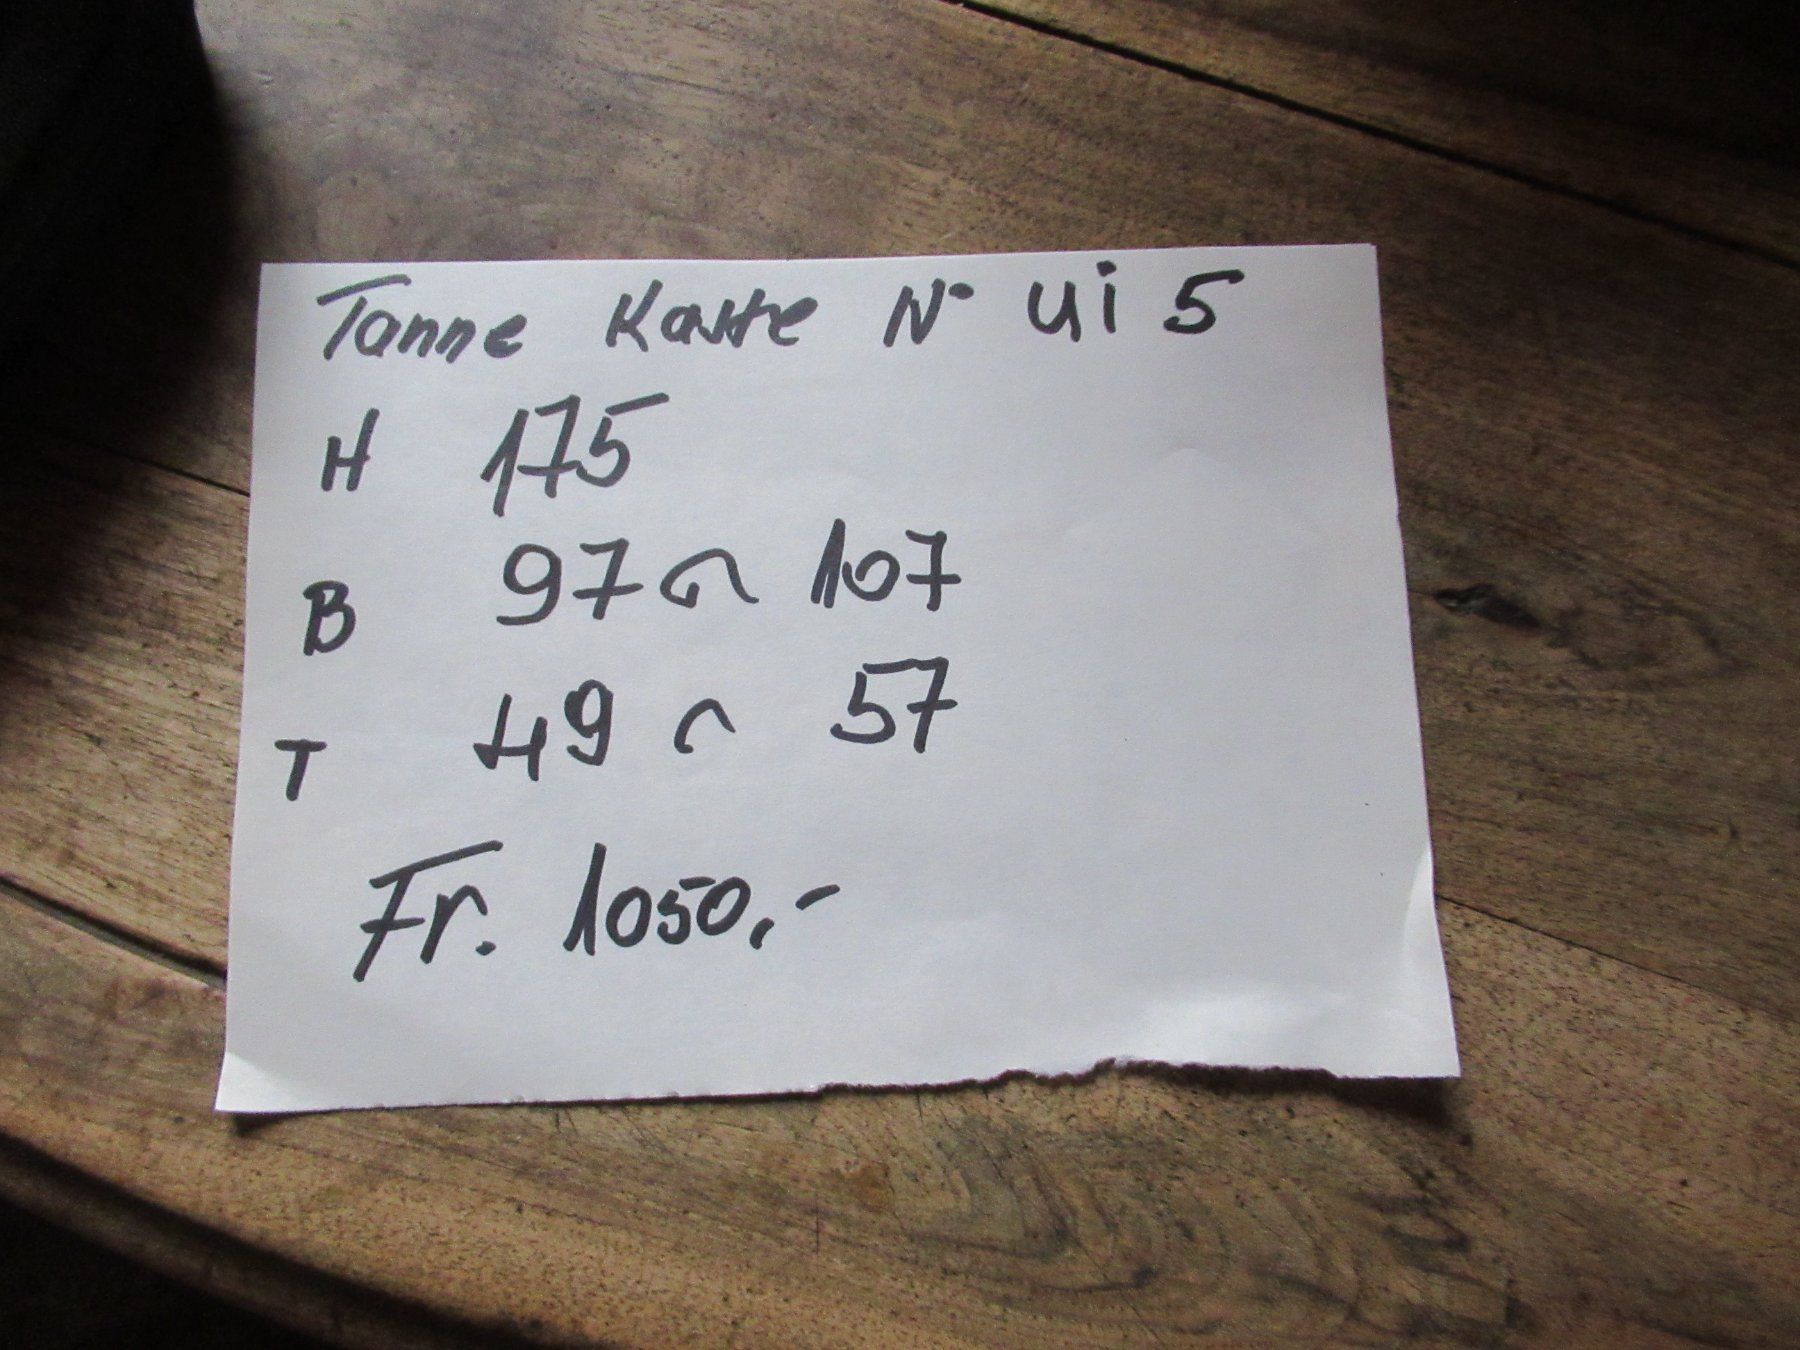 Tanne Kaste N° Ui 5
H 175
B 97 ⌒ 107
T 49 ⌒ 57
Fr. 1050,-